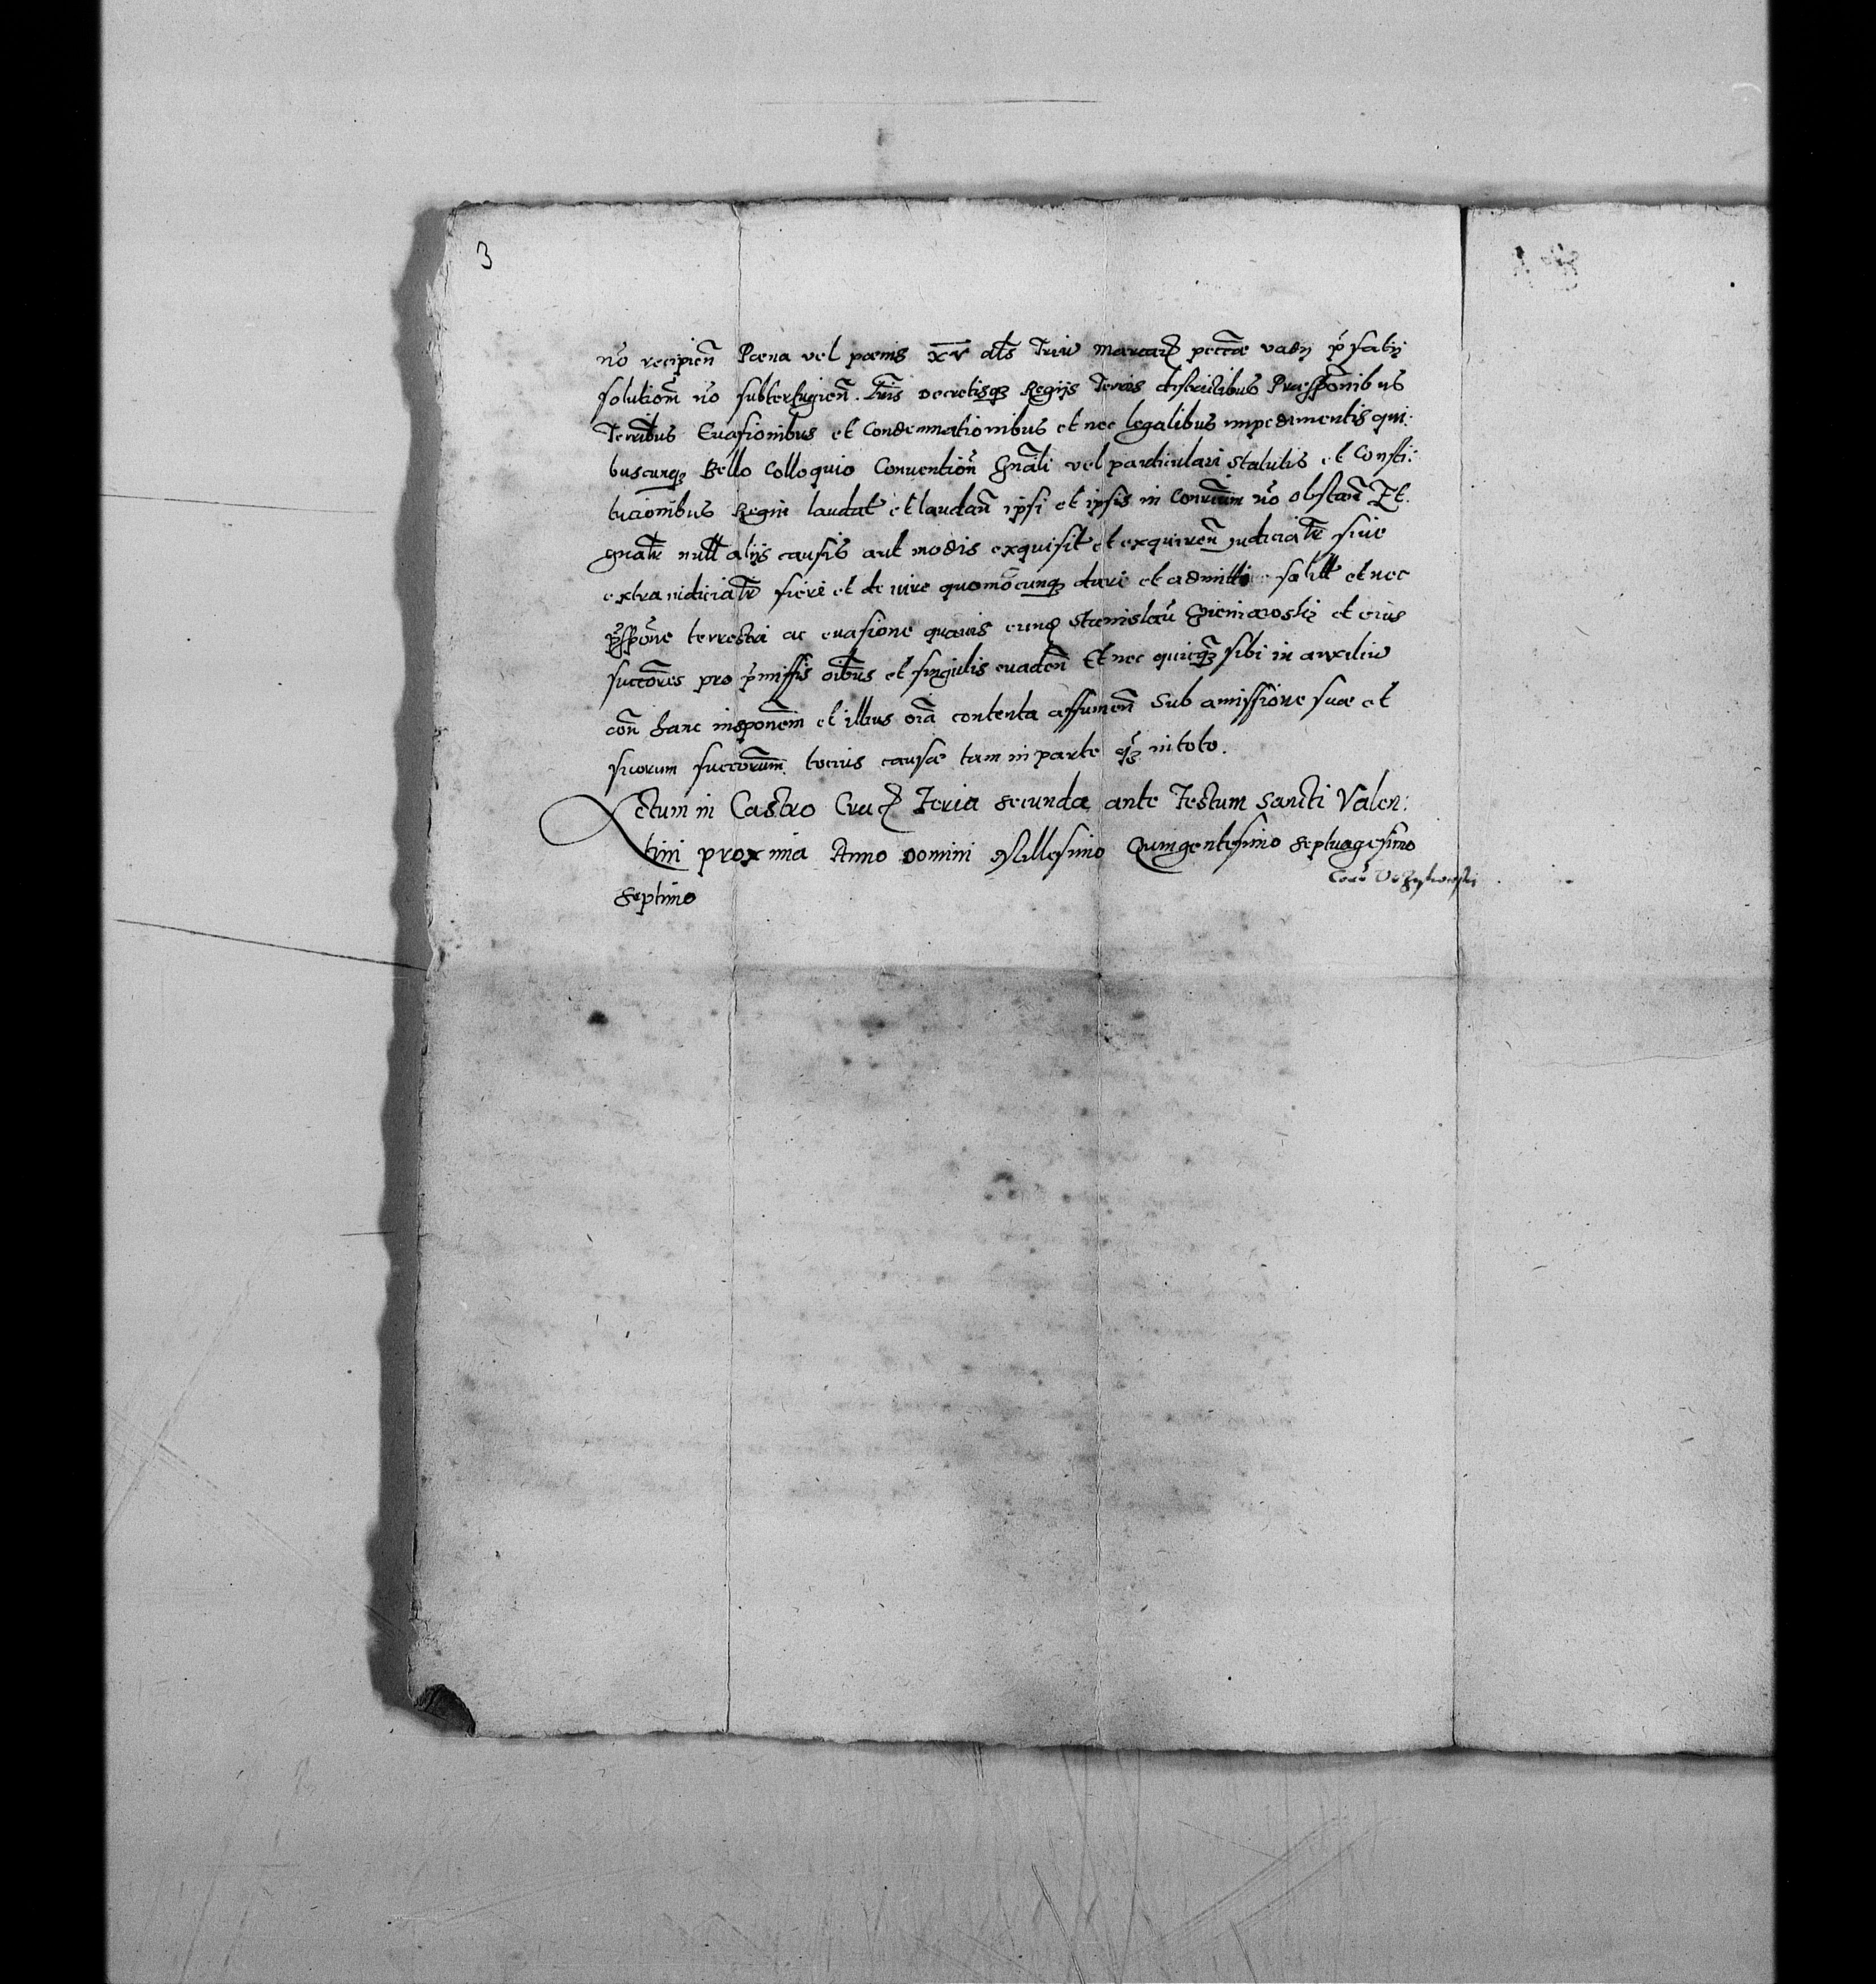 3
nō recipieñ Pœna vel pœnis XV als Triū marcarȝ pecc̄æ vadÿ p̄ satÿ
solutiom̄ nō subterfugieñ. Lr̄is Decretisqȝ Regijs Terris districtibus Præsspōnibus
Terribus Euasionibus et Condemnationibus et nec legalibus impedimentis qui:
buscunqȝ Bello Colloquio Conuentioñ Gnāli vel particulari Statutis et Consti:
tucionibus Regni laudat et laudañ ipsi et ipsis in Contrium nō obstañ Et.
gnālr null alijs causis aut modis exquisit et exquireñ iudicialr siue
extra iudicialr fieri et de iure quomōcunqȝ dari et admitti solitt et nec
p̄sspōne terrestri ac euasione quauis eunḍ Stanislaū et eius
succōres pro p̄missis oībus et singulis euadeñ Et nec quicq̄ȝ sibi in auxiliū
coñ hanc insponēm et illius oīa contenta assumeñ Sub amissione suæ et
suorum succorum tocius causæ tam in parte qȝ in toto.
Actum in Castro Cruȝ Feria secunda ante Festum Sancti Valen:
tini proxima Anno Domini Millesimo Quingentesimo Septuagesimo
Septimo